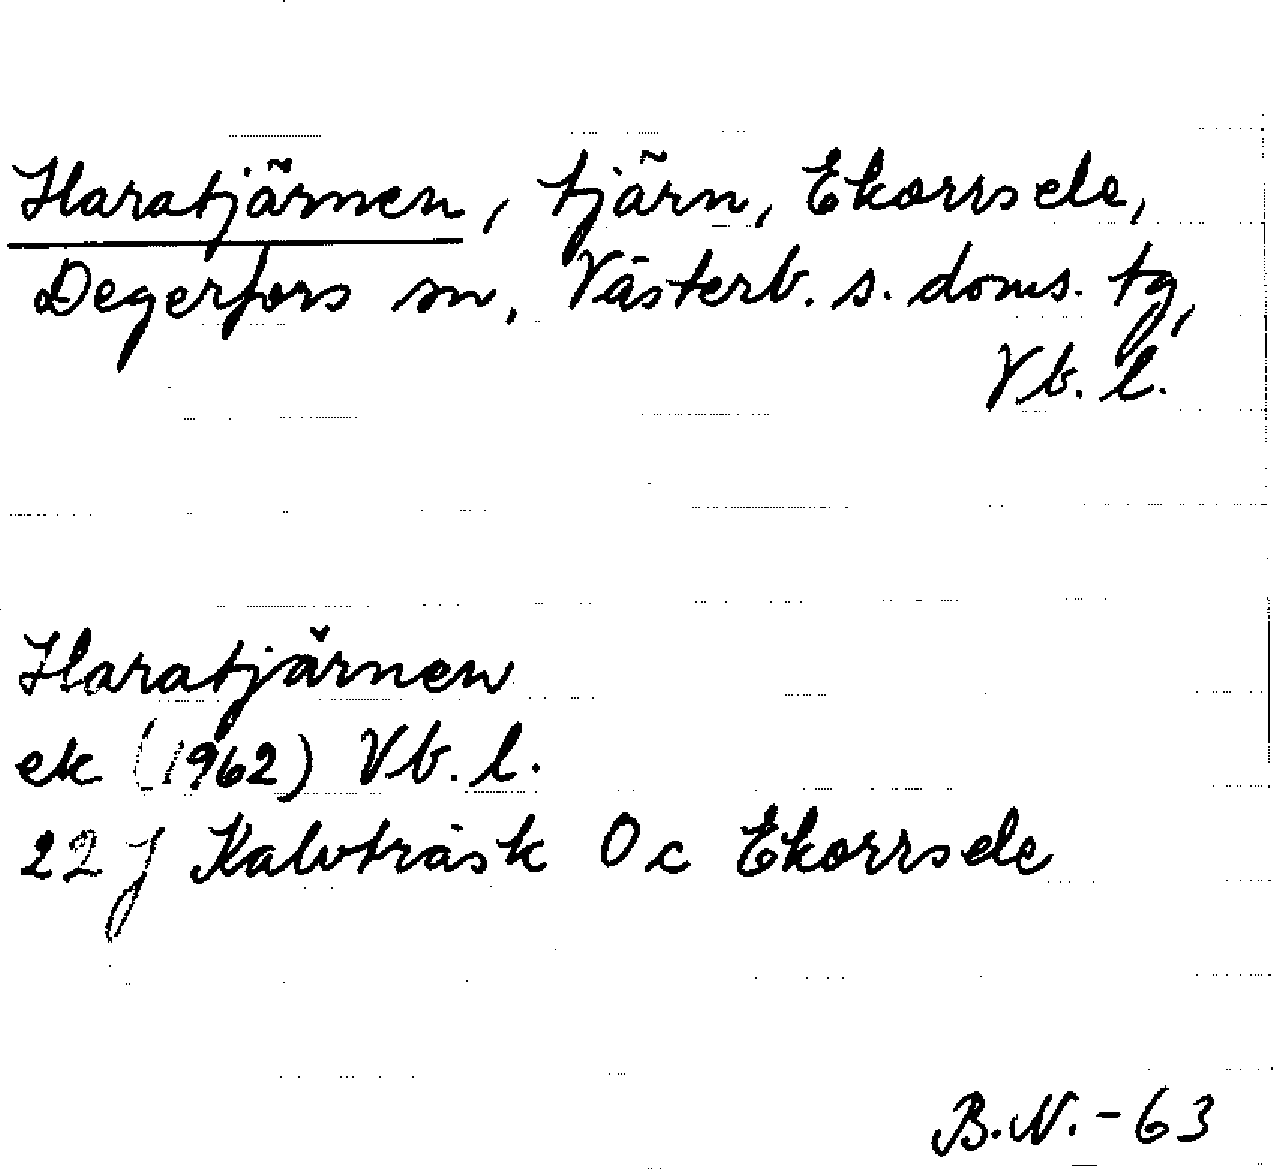 Haratjärnen, tjärn, Ekorrsele,
Degerfors sn, Västerb. s. doms. tg,
Vb. l.
Haratjärnen
ek (1962) Vb. l.
22 J Kalvträsk 0 c Ekorrsele
B.N. - 63